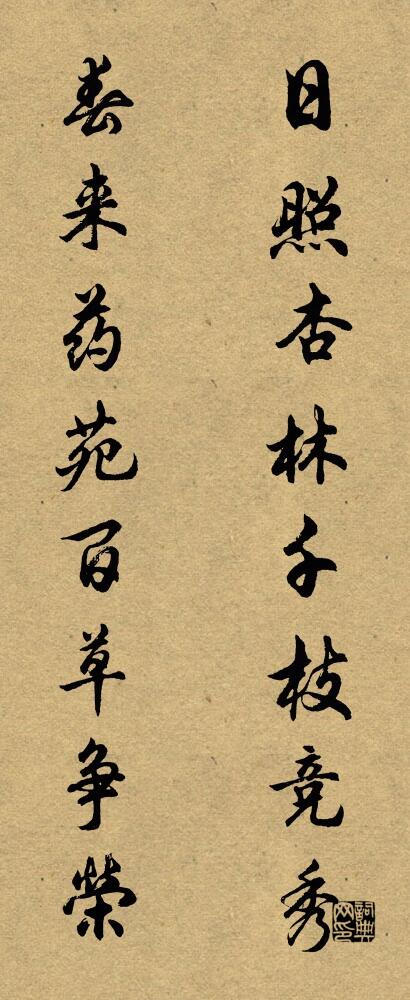 日照杏林千枝竞秀
春来药苑百草争榮
詞典
网印